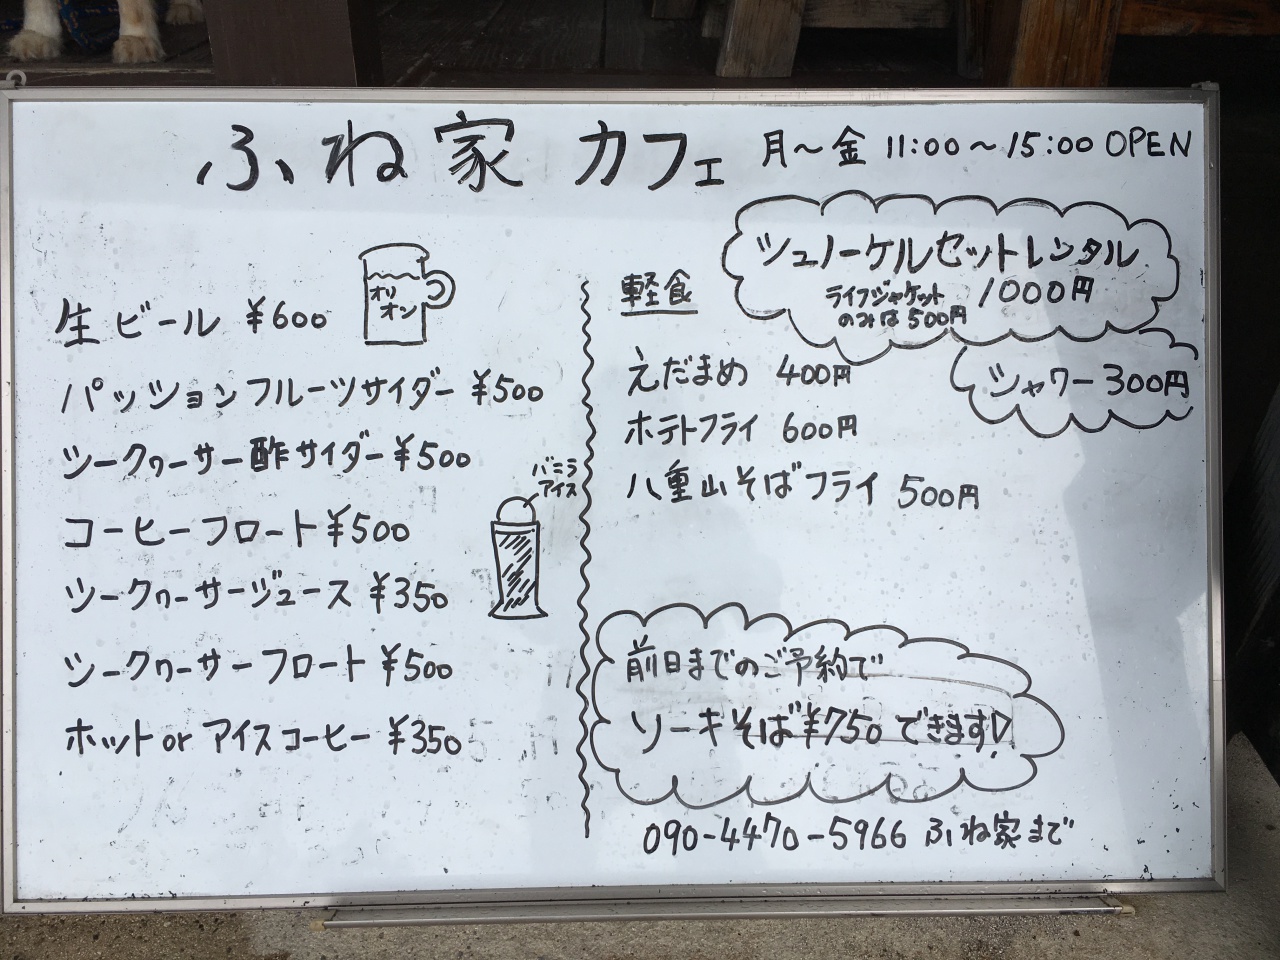 ふね家 カフェ 月〜金 11:00〜15:00 OPEN
生ビール ¥600
オリ
オン
パッションフルーツサイダー ¥500
シークヮーサー酢サイダー ¥500
コーヒーフロート ¥500
バニラ
アイス
シークヮーサージュース ¥350
シークヮーサーフロート ¥500
ホットor アイスコーヒー ¥350
シュノーケルセットレンタル
1000円
ライフジャケット
のみは 500円
シャワー 300円
軽食
えだまめ 400円
ホテトフライ 600円
八重山そばフライ 500円
前日までのご予約で
ソーキそば¥750できます♡
090-4470-5966 ふね家まで